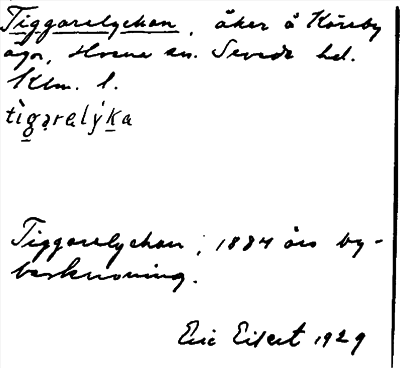 Tiggarelyckan, åker å Köreby
ägor, Hvena sn. Sevede hd.
Klm. l.
tìgarelýka
Tiggarelyckan, 1884 års by-
beskrivning.
Eric Eifert 1929